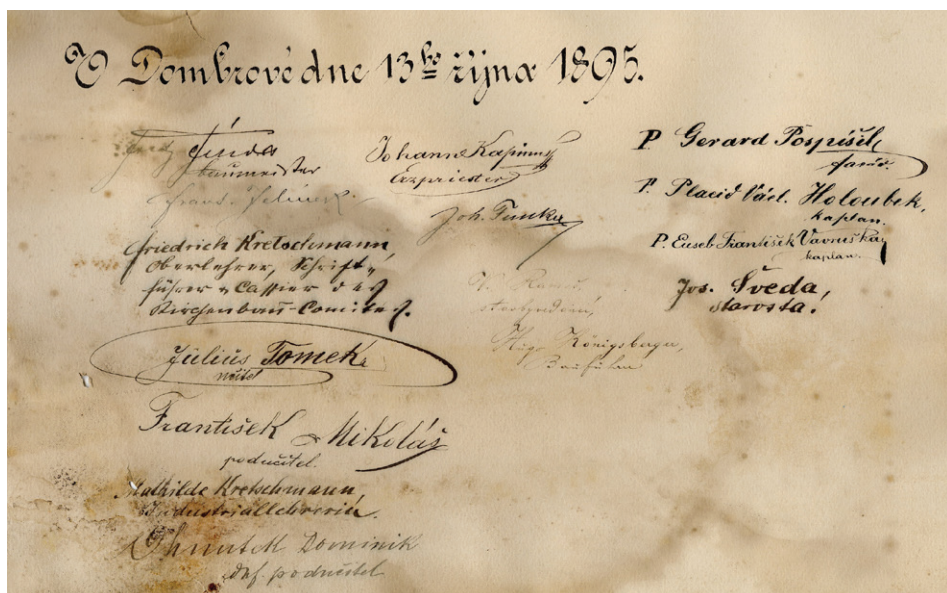 V Dombrové dne 13ho října 1895.
Jinda
Baumeister
Friedrich Kretschmann,
Oberlehrer, Schrift-
führer u Cassier des
Kirchenbau-Comites.
Julius Tomek,
učitel
František Mikoláš
podučitel.
Mathilde Kretschmann,
Industriallehrerin.
Dominik
def. podučitel
Johann Kapinus
Erzpriester
Joh. Funke
Königsberger,
Bauführer
P Gerard Pospíšil,
farář.
P. Placid Václ. Holoubek,
kaplan.
P. Euseb František Vavruška,
kaplan.
Jos. Šveda,
starosta.